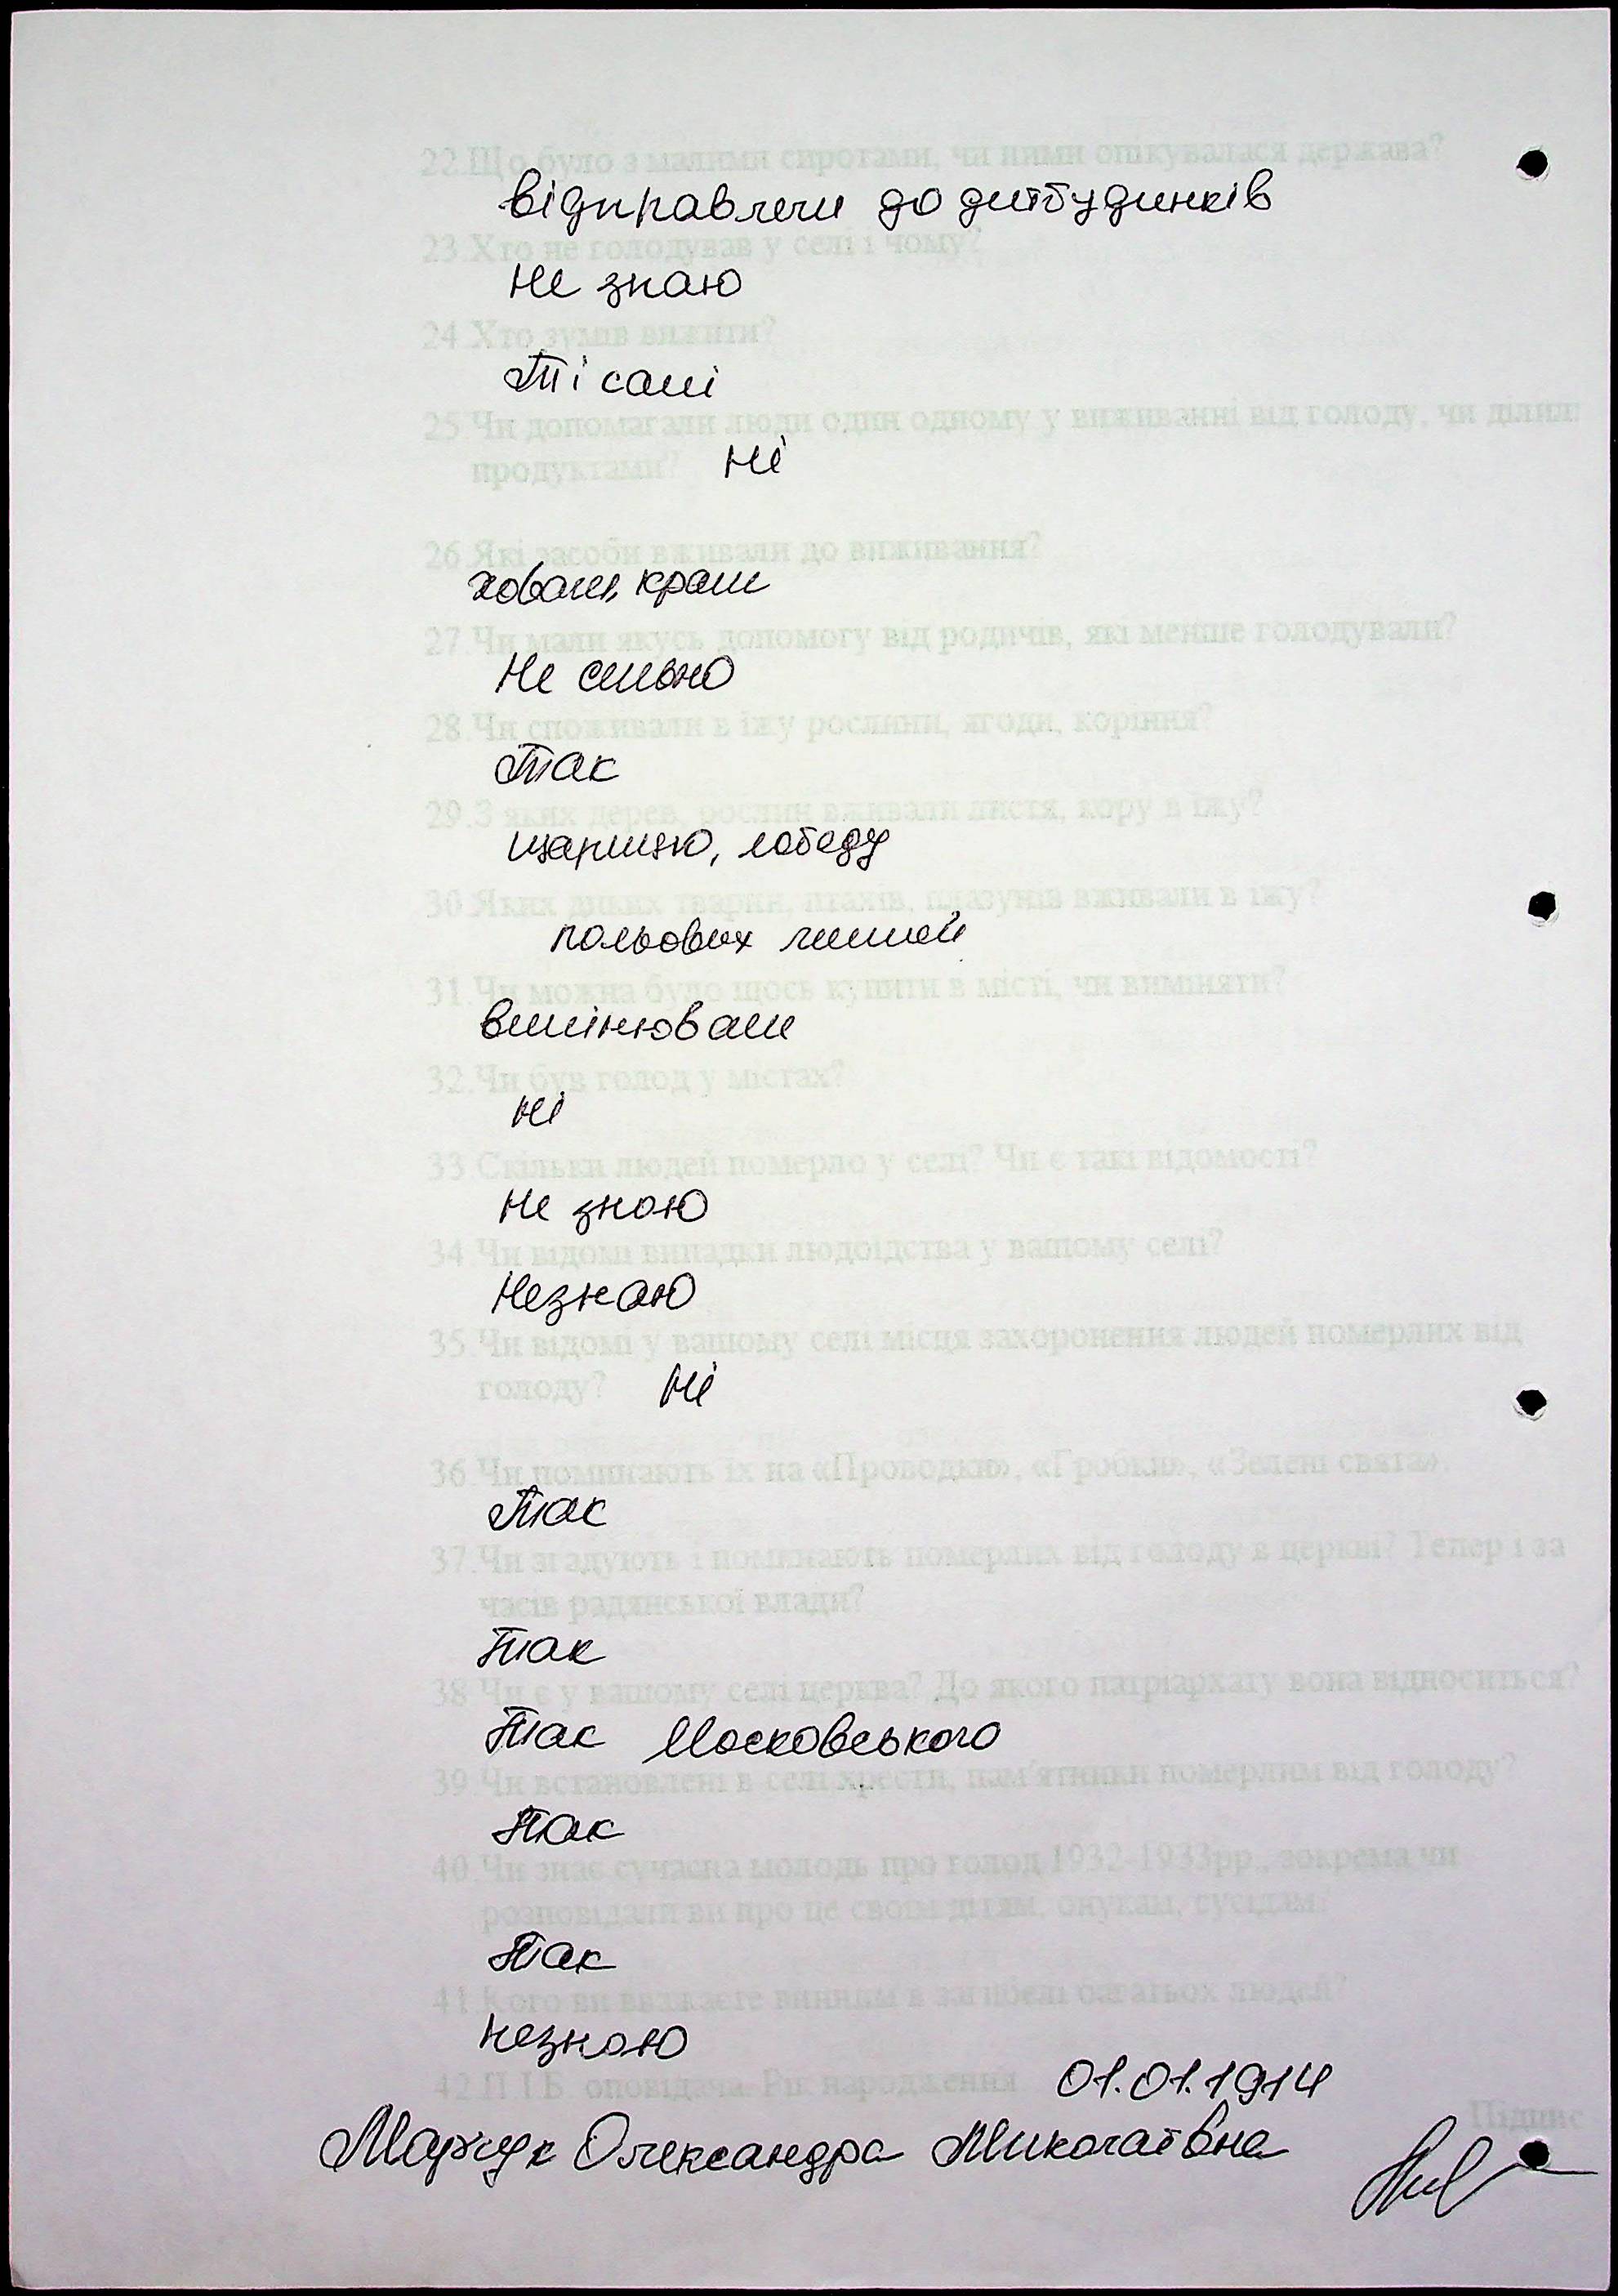 22.Що було з малими сиротами, чи ними опікувалася держава?
відправлені до дитбудинків
23.Хто не голодував у селі і чому?
Не знаю
24.Хто зумів вижити?
Ті самі
25.Чи допомагали люди один одному у виживанні від голоду, чи ділил
продуктами? Ні
26.Які засоби вживали до виживання?
ховали, крали
27.Чи мали якусь допомогу від родичів, які менше голодували?
Не сильно
28.Чи споживали в їжу рослини, ягоди, коріння?
Так
29.З яких дерев, рослин вживали листя, кору в їжу?
щарицю, лободу
30.Яких диких тварин, птахів, плазунів вживали в їжу?
польових мишей
31.Чи можна було щось купити в місті, чи виміняти?
вимінювали
32.Чи був голод у містах?
Ні
33.Скільки людей померло у селі? Чи є такі відомості?
Не знаю
34.Чи відомі випадки людоїдства у вашому селі?
Незнаю
35.Чи відомі у вашому селі місця захоронення людей померлих від
голоду? Ні
36.Чи поминають їх на «Проводки», «Гробки», «Зелені свята».
Так
37.Чи згадують і поминають померлих від голоду в церкві? Тепер і за
часів радянської влади?
Так
38.Чи є у вашому селі церква? До якого патріархату вона відноситься?
Так Московського
39.Чи встановлені в селі хрести, пам'ятники померлим від голоду?
Так
40.Чи знає сучасна молодь про голод 1932-1933рр., зокрема чи
розповідали ви про це своїм дітям, онукам, сусідам?
Так
41.Кого ви вважаєте винним в загибелі багатьох людей?
незнаю
42.П.І.Б. оповідача. Рік народження 01.01.1914
Підпис
Марчук Олександра Миколаївна